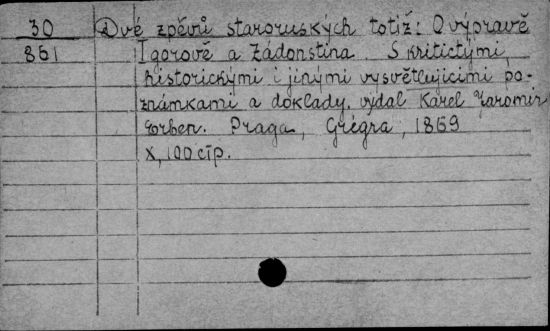 30 Dvé zpěvů staroruských totiž: O výpravě
861 Igorově a Zádonstina. S kritictými,
historickými i jinými vysvětlujicimi po-
známkami a doklady, vydal Karel Jaromir
Erben. Praga, Grégra, 1869
X, 100 cīp.